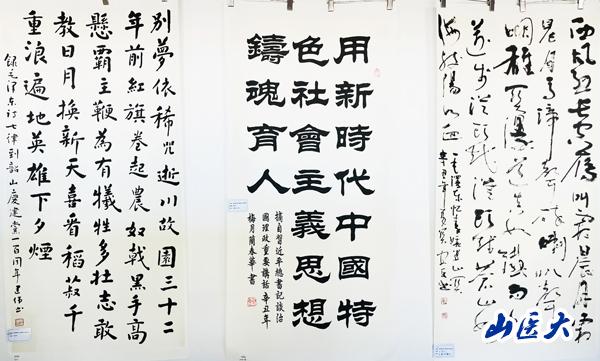 別夢依稀咒逝川故園三十二
年前紅旗卷起農奴戟黑手高
懸霸主鞭為有犧牲多壯志敢
教日月換新天喜看稻菽千
重浪遍地英雄下夕煙
錄毛澤東詩七律到韶山慶建黨一百周年
用新時代中國特
色社會主義思想
鑄魂育人
摘自習近平總書記談治
國理政重要講話辛丑年
梅月蘭春華書
西風烈長空雁叫霜晨月霜
晨月馬蹄聲碎喇叭聲
咽雄關漫道真如鐵而今
邁步從頭越從頭越蒼山如
海殘陽如血
毛澤東憶秦娥婁山關
辛丑年
山医大